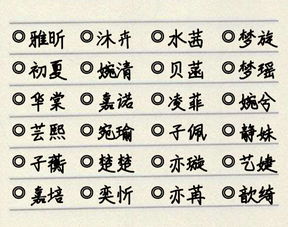 ◎雅昕 ◎沐卉 ◎水茜 ◎梦旋
◎初夏 ◎婉清 ◎贝菡 ◎梦瑶
◎华棠 ◎嘉诺 ◎凌菲 ◎婉兮
◎芸熙 ◎宛瑜 ◎子佩 ◎静姝
◎子蘅 ◎楚楚 ◎亦璇 ◎艺婕
◎嘉培 ◎奕忻 ◎亦苒 ◎歆绮